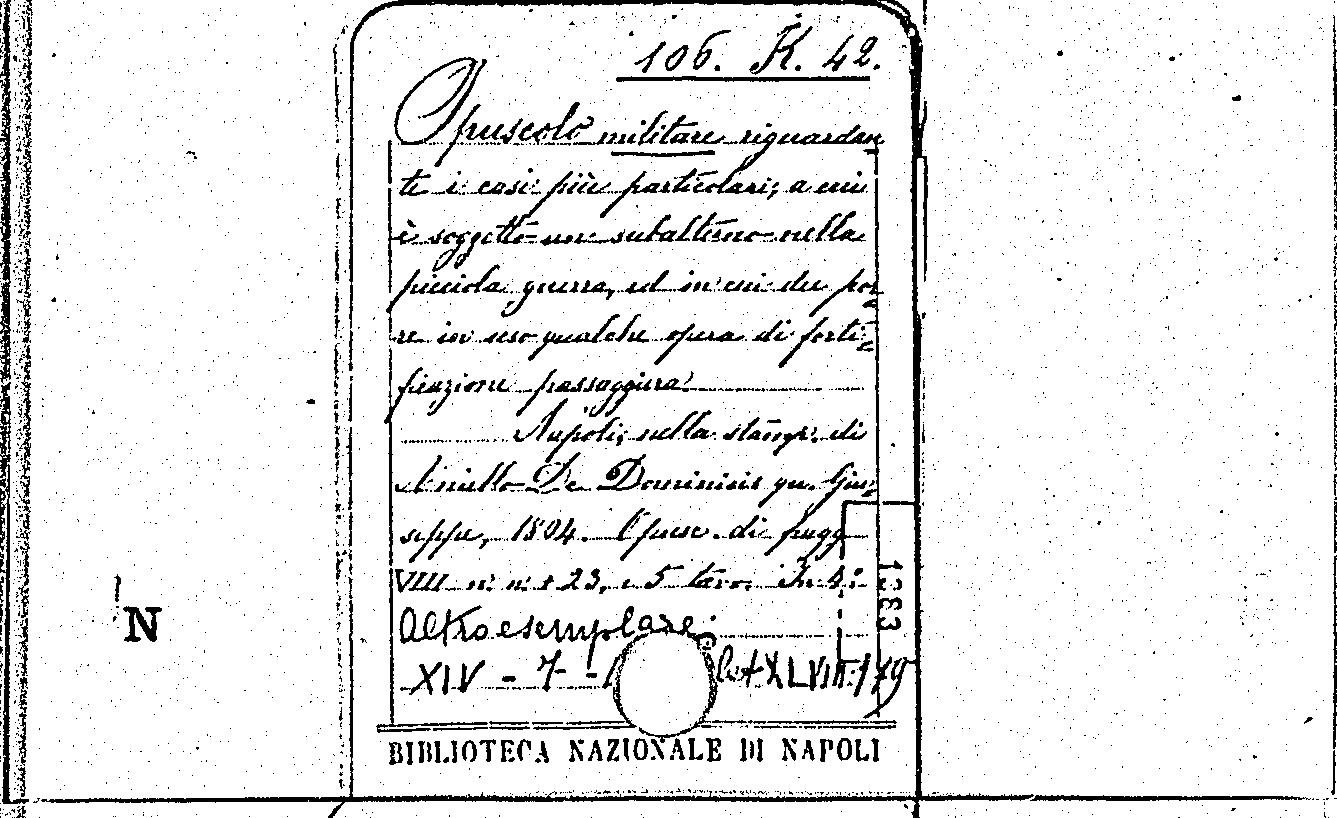 106. K. 42.
Opuscolo militare riguardan
ti i casi più particolari, a cui
è soggetto un subalterno nella
picciola guerra, ed in cui dee por
re in uso qualche opera di forti
ficazione passaggiera.
Napoli, nella stamp. di
Aniello De Dominicis qu. Giu
seppe, 1804. Opusc. di pagg
VIII n. n. + 23, e 5 tav. In 4.°
1883
Altro esemplare
XIV - 7 - XLVIII 179
N
BIBLIOTECA NAZIONALE DI NAPOLI